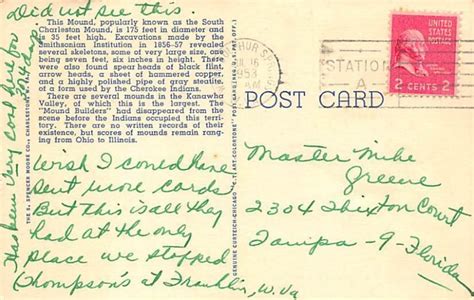 Did not see this.
This Mound, popularly known as the South
Charleston Mound, is 175 feet in diameter and
is 35 feet high. Excavations made by the
Smithsonian Institution in 1856-57 revealed
several skeletons, some of very large size, one
being seven feet, six inches in height. There
were also found spear heads of black flint,
arrow heads, a sheet of hammered copper,
and a highly polished pipe of gray steatite
of a form used by the Cherokee Indians.
There are several mounds in the Kanawha
Valley, of which this is the largest. The
"Mound Builders" had disappeared from the
scene before the Indians occupied this ter-
ritory. There are no written records of their
existence, but scores of mounds remain rang-
ing from Ohio to Illinois.
Wish I could have
sent more cards
But this is all they
had at the only
place we stopped
(Thompson's T Franklin, W.Va
Has been very cool here for
2 days
THE A. SPENCER MOORE CO., CHARLESTON
GENUINE CURTEICH-CHICAGO "C.T. ART-COLORTONE" POST CARD (REG. U.S. PAT. OFF.)
POST CARD
THUR SP
JUL 16
1953
STATION
A
UNITED STATES
POSTAGE
2 CENTS 2
Master Mike
Greene
2304 Thixton Court
Tampa - 9 - Florida